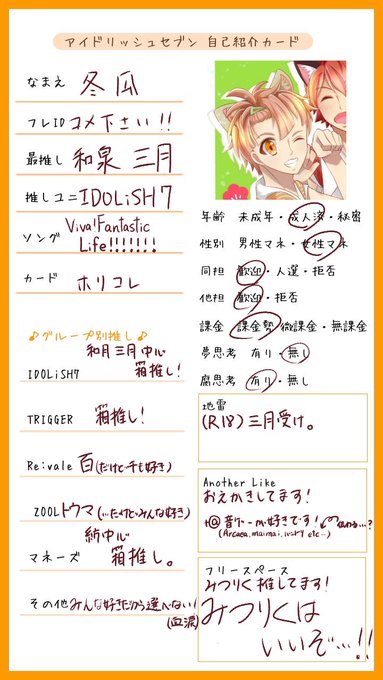 アイドリッシュセブン 自己紹介カード
なまえ 冬瓜
フレID コメ下さい!!
最推し 和泉 三月
推しユニ IDOLiSH7
ソング Viva!Fantastic
Life!!!!!!!
カード ホリコレ
♪グループ別推し♪
和月 三月 中心
IDOLiSH7 箱推し!
TRIGGER 箱推し!
Re:vale 百(だけど千も好き)
ŹOOĻ トウマ(…だけどみんな好き)
紡中心
マネーズ 箱推し。
その他 みんな好きだから選べない!
(血涙)
年齢 未成年・成人済・秘密
性別 男性マネ・女性マネ
同担 歓迎・人選・拒否
他担 歓迎・拒否
課金 課金勢・微課金・無課金
夢思考 有り・無し
腐思考 有り・無し
地雷
(R18)三月受け。
Another Like
おえかきしてます!
音ゲーm好きです!
(Arcaea,maimai, etc…)
フリースペース
みつりく推してます!
みつりくは
いいぞ…!!